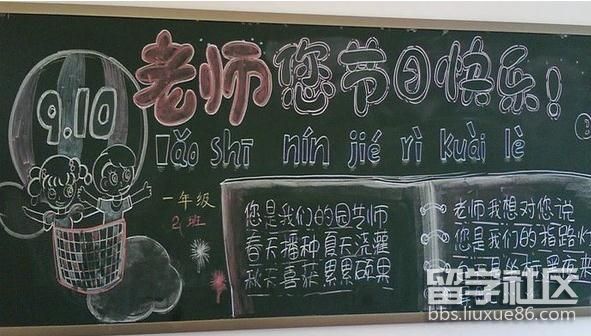 9.10
老师您节日快乐!
lǎo shī nín jié rì kuài lè
一年级
2班
您是我们的园艺师
春天播种夏天浇灌
秋天喜获累累硕果
老师我想对您说
您是我们的指路灯
留学社区
bbs.liuxue86.com